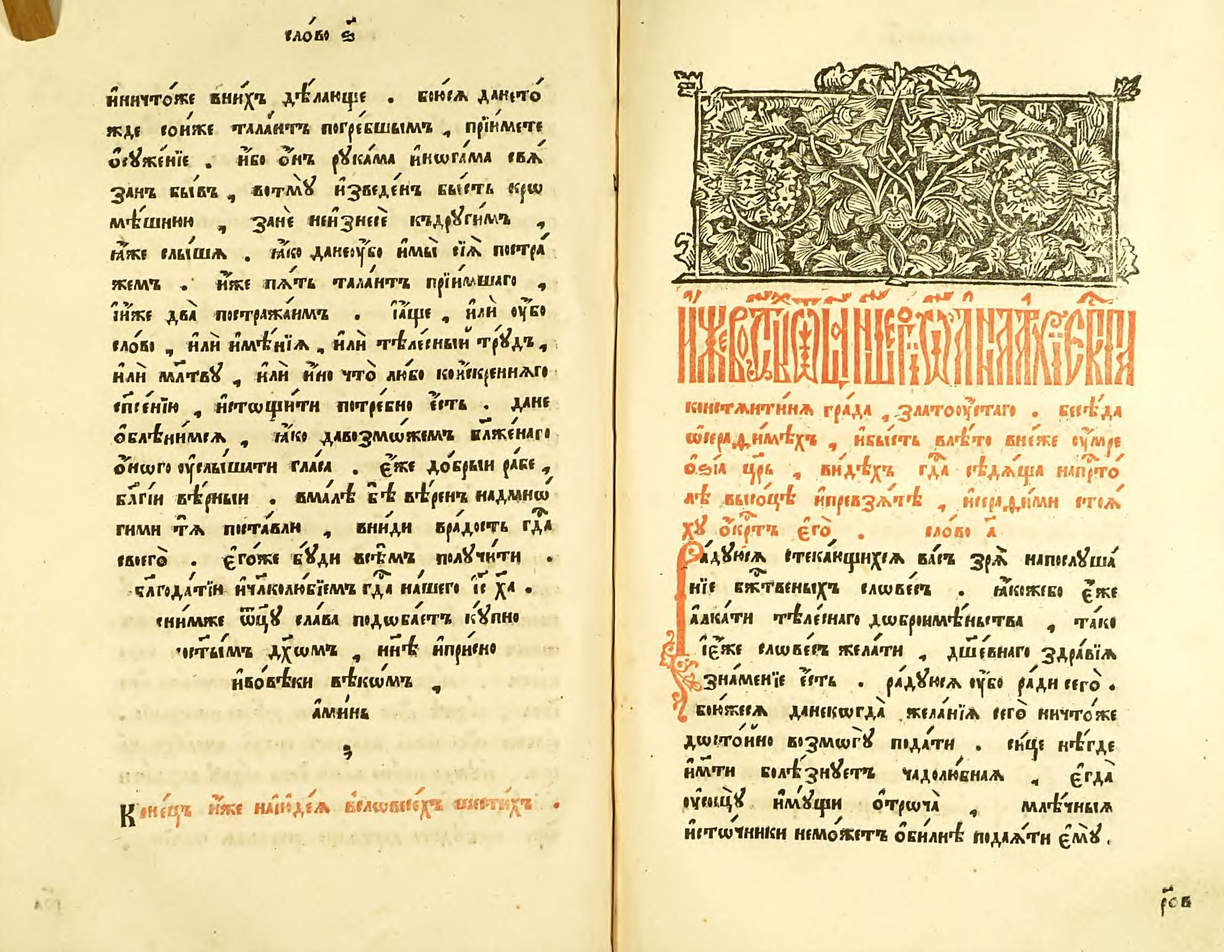 сло́во ѕ҃
и҆ничто́же вни́хъ дѣ́лающе . бою́сѧ дансто́
жде сои́же тала́нтъ погре́бшымъ , прїи́мете
ѡ҆суже́нїе . и҆́бо ѻ҆́нъ рука́ма и҆нога́ма свѧ́
занъ бы́въ , вотмꙋ̀ и҆зведе́нъ бы́сть крѡ
мѣ́шнюю , занѐ неи҆знесѐ къдругим̀ъ ,
ꙗ҆́же слы́ша . ꙗ҆́ко данеᲂу҆́бо и҆мы̀ сїѧ̀ постра́
жемъ . и҆́же пѧ́ть тала́нтъ прїи́мшаго ,
їи҆́же два̀ постража́имъ . їа҆́ще , и҆лѝ ᲂу҆́бо
сло́во , и҆лѝ и҆мѣ́нїѧ , и҆лѝ тѣле́сный тру́дъ ,
и҆лѝ мл҃твꙋ , и҆лѝ и҆́но что̀ лю́бо кои҆́скреннѧго
сп҃се́нїю , и҆стощи́ти потре́бно є҆́сть . да́не
ѻ҆блѣни́мсѧ , ꙗ҆́ко давозмо́жемъ бл҃же́наго
ѻ҆́ного ᲂу҆слы́шати гла́са . є҆́же до́брыи ра́бе ,
бл҃гі́и вѣ́рныи . вма́лѣ бѣ̀ вѣ́ренъ надмно́
гими тѧ̀ поста́влю , вни́ди вра́дость гд҃а
своегѡ̀ . є҆го́же бу́ди всѣ́мъ получи́ти .
бл҃года́тїю и҆чл҃колю́бїемъ гд҃а на́шего і҆с҃ х҃а .
сни́мже ѿц҃ꙋ сла́ва подоба́етъ ку́пно
ѻст҃ы́мъ дх҃о́мъ , ны́нѣ и҆при́сно
и҆вове́ки вѣкѡ́мъ ,
а҆ми́нь
Коне́цъ и҆́же наи҆ю́деѧ ѕ҃сло́весехъ шести́хъ .
и҆́же во ст҃ы́хъ ѻ҆ц҃а̀ на́шегѡ і҆ѡа́нна а҆рхїепⷭ҇кпа
константи́нѧ гра́да , златоу́стаго . бесѣ́да
ѡ҆серафи́мѣхъ , и҆бы́сть влѣ́то вне́же ᲂу҆́мре
ѻ҆зі́а цр҃ь , ви́дѣхъ гд҃а сѣдѧ́ща напр҇то́
лѣ высо́цѣ и҆превзѧ́тѣ , и҆серафи́ми стоѧ́
хꙋ ѻ҆́крⷭ҇тъ є҆гѡ̀ . сло́во а҃
Ра́дуюсѧ стека́ющихсѧ ва́съ зрѧ̀ напослуша́
нїе бж҃твеныхъ слове́съ . ꙗ҆́коже́бо є҆́же
алка́ти тѣле́снаго доброимѣ́ньства , та́ко
їє҆́же слове́съ жела́ти , дш҃е́внаго здра́вїѧ
зна́менїе є҆́сть . ра́дуюсѧ ᲂу҆́бо ра́ди сего̀ .
бою́жесѧ данекогда̀ жела́нїѧ сего̀ ничто́же
досто́йно возмогꙋ̀ пода́ти . си́це нѣ́где
и҆ м҃ти болѣ́знуетъ чадолю́бнаѧ , є҆гда̀
ᲂу҆со́щꙋ и҆мꙋ́щи ѻ҆троча̀ , мле́чныѧ
и҆сто́чники немо́жетъ ѻ҆би́лнѣ подаѧ́ти є҆мꙋ̀ .
р҃ов